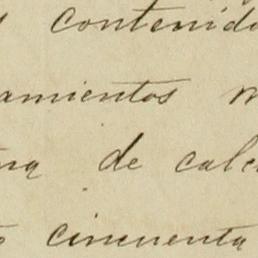 contenido
amientos
de calc
cincuenta